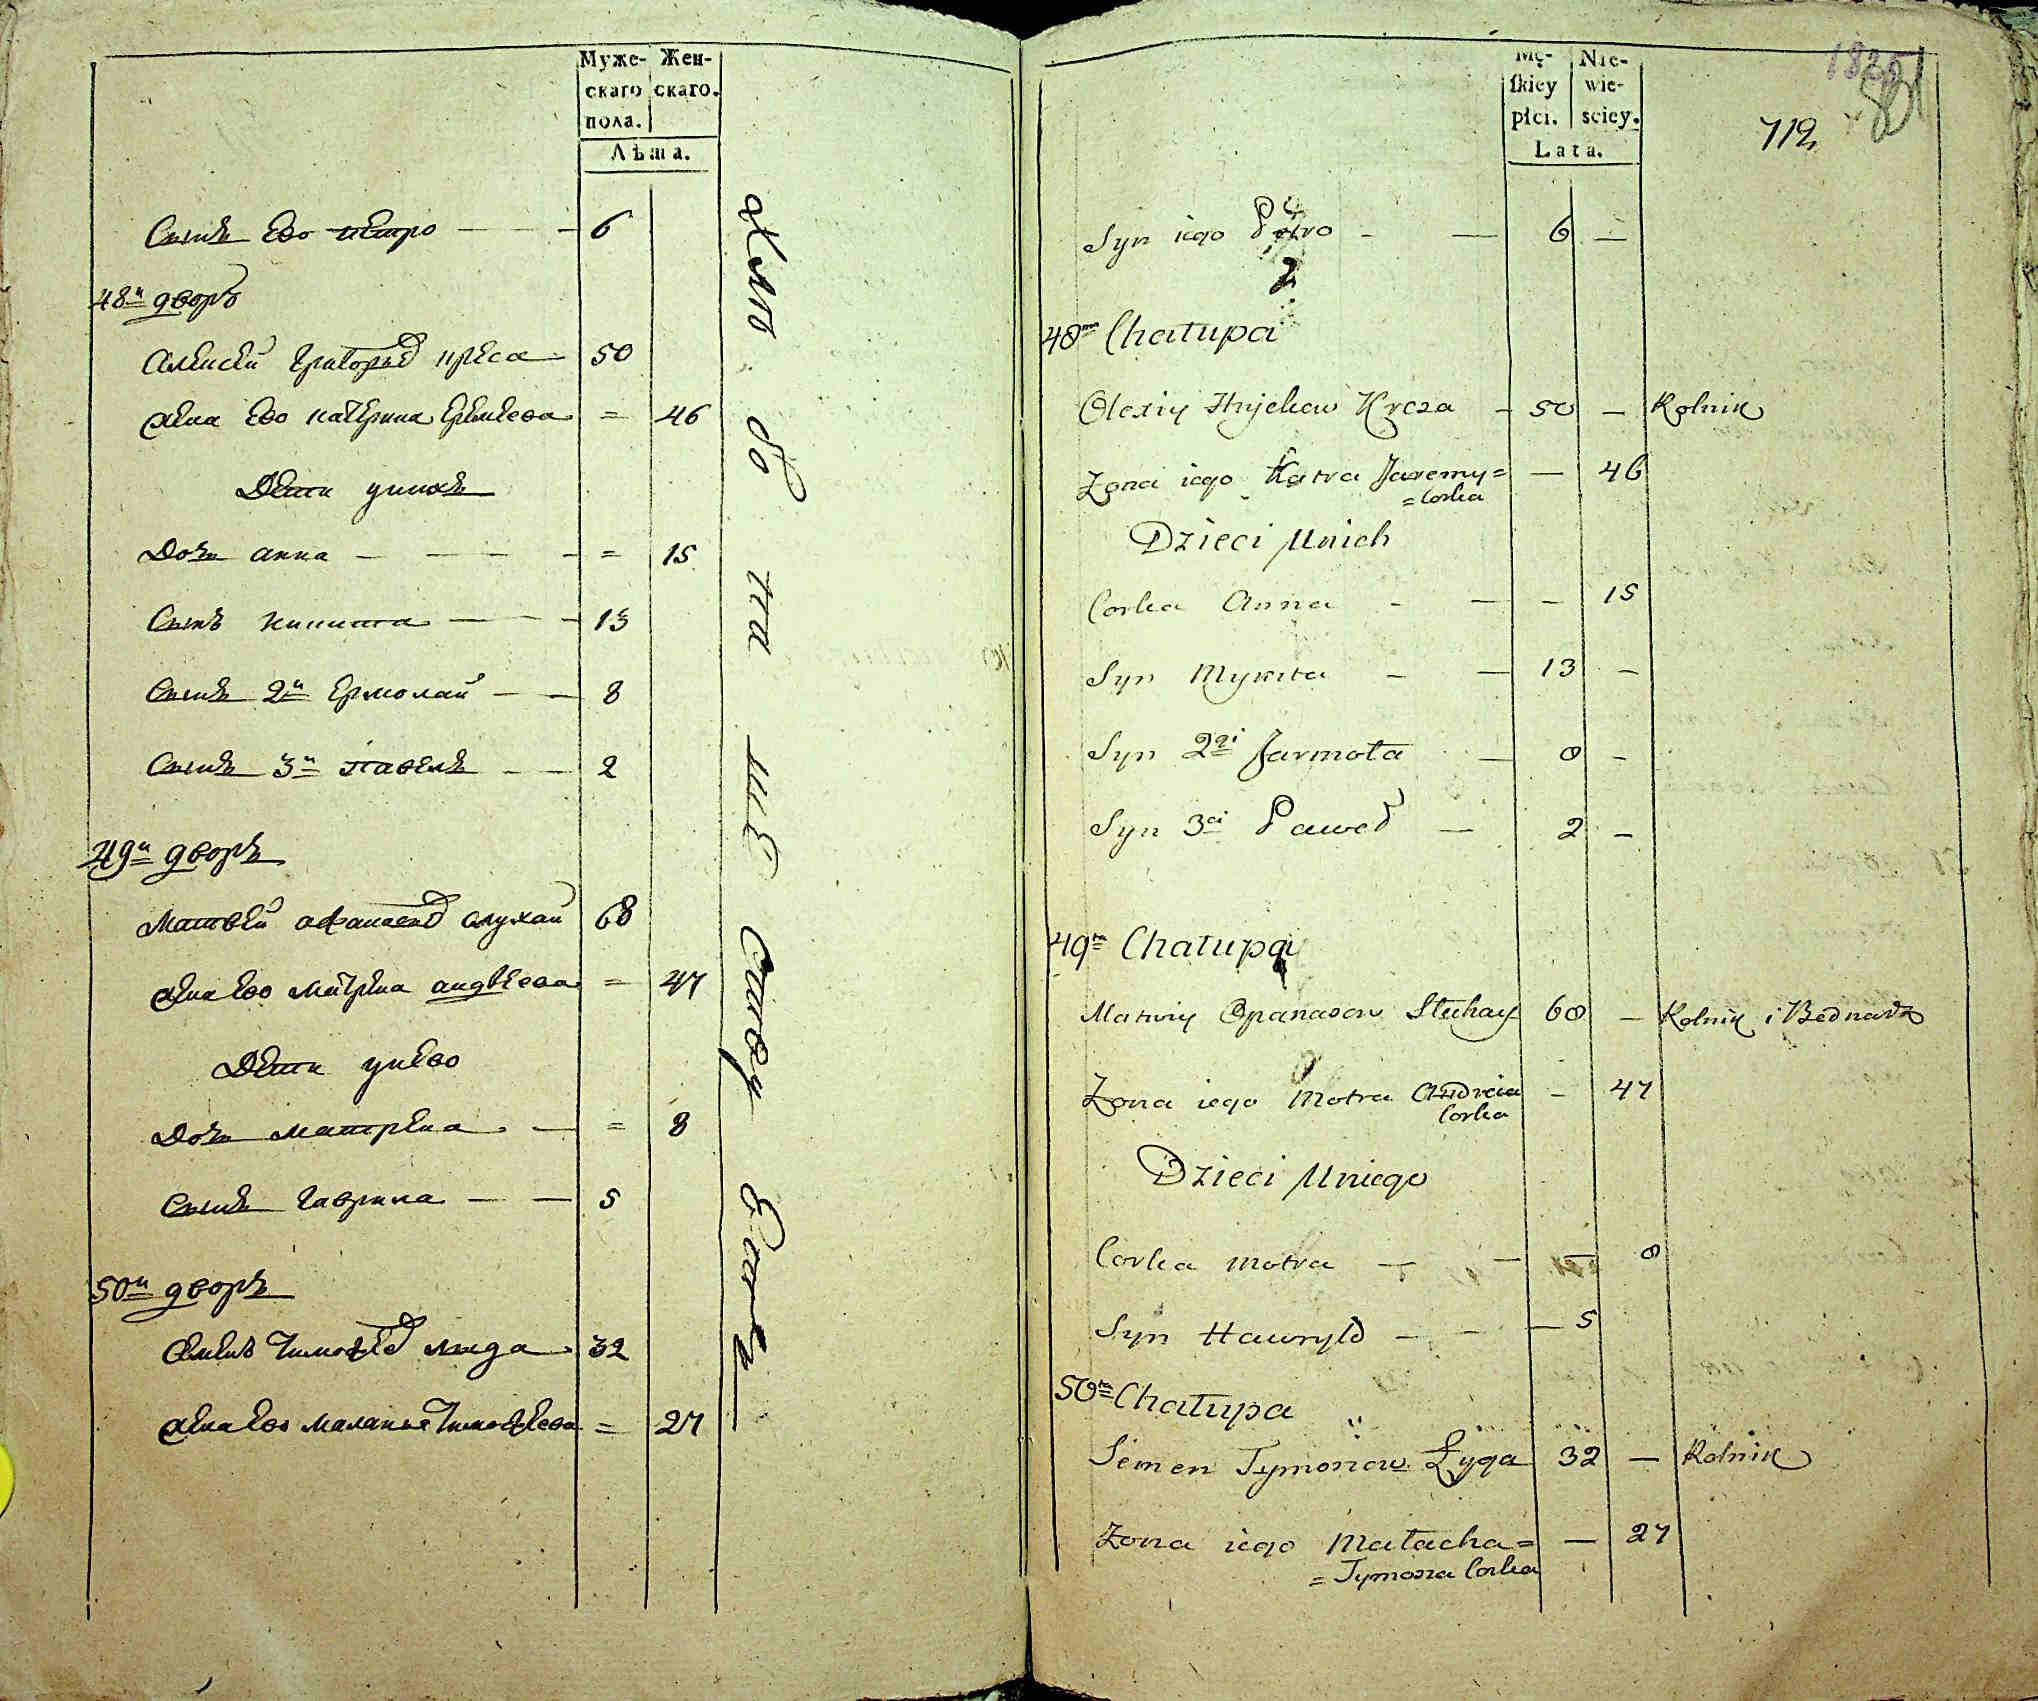 Муже-
скаго
пола.
Жен-
скаго.
Лѣта.
Сынъ Ево петро — — — 6
48й дворъ
Алексѣй Григорьевъ креса 50
Жена Ево катерина Еремѣева = 46
Дети унихъ
Дочь анна — — — — = 15
Сынъ никита — — — 13
Сынъ 2й Ермолай — — 8
Сынъ 3й павелъ — — 2
49й дворъ
Матвей афанасьевъ слухай 68
Жена Ево матрена андреева = 47
Дети унево
Дочь матрена — = 8
Сынъ гаврила — — 5
50й дворъ
Семенъ Тимофеевъ лыда 32
Жена Ево маланья Тимофеева = 27
Mę-
skiey
płci.
Nie-
wie-
sciey.
Lata.
712
Syn iego Petro - — 6 —
48ma Chałupa
Olexiy Hryckow Kreza - 50 — Rolnik
Zona iego Katra Jaremy=
=Corka — 46
Dzieci Unich
Corka Anna - — - 15
Syn Mykita - — 13 -
Syn 2gi Jarmoła — 8 -
Syn 3ci Paweł — 2 -
49ta Chałupa
Matwiy Opanasow Słuchay 68 — Rolnik i Bednarz
Zona iego Motra Andreia
Corka — 47
Dzieci Uniego
Corka Motra — — — 8
Syn Hawryło — - — 5
50ta Chałupa
Semen Tymonow Łyga 32 — Rolnik
Zona iego Małacha=
=Tymona Corka — 27